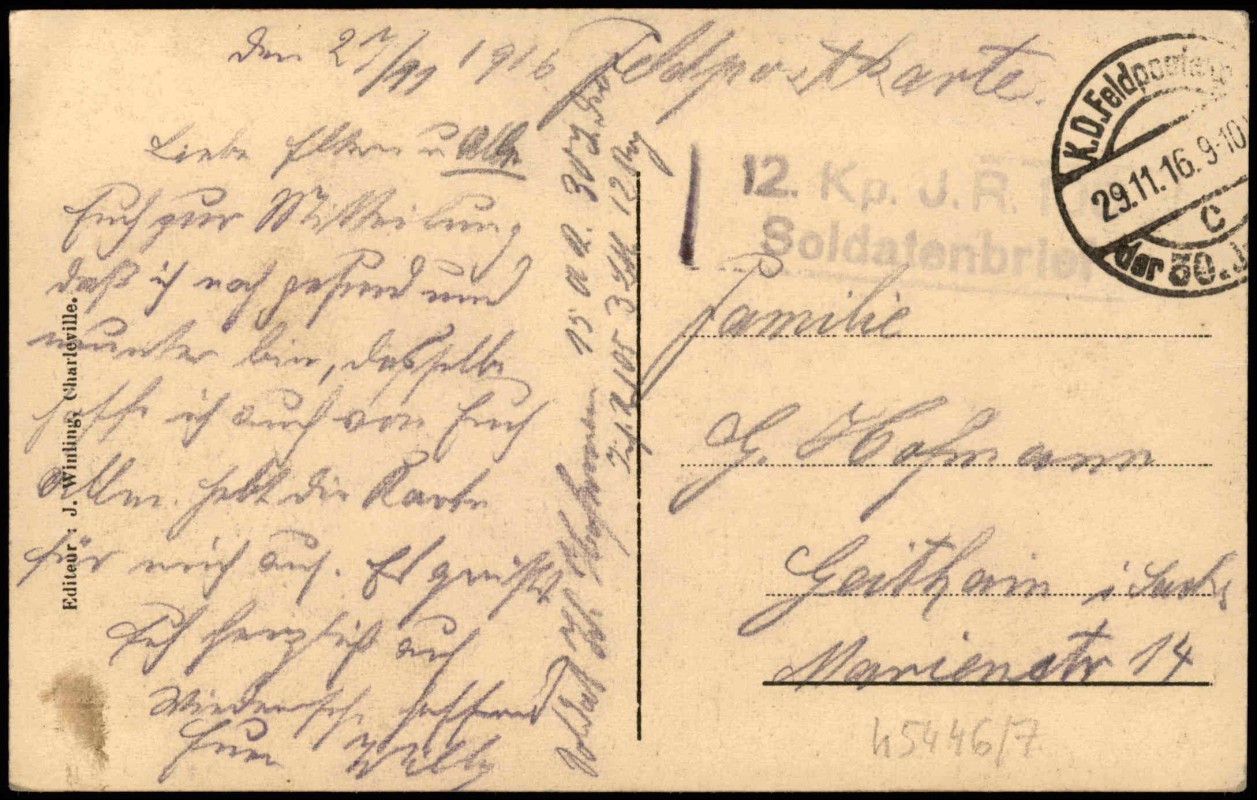 den 27/11 1916
Feldpostkarte.
Liebe Eltern u Alle
Euch zur Mitteilung
daß ich noch gesund und
munter bin, dasselbe
hoffe ich auch von Euch
Allen. hebt die Karte
für mich auf. Es grüßt
Euch herzlich auf
Wiedersehe hoffend
Euer Willy
Soldat W. Hofmann 15 a. R. 30 J. Div
Inf. R 105 3 Btl 12 Kp
12. Kp. J. R.
Soldatenbrief
K.D. Feldpostexp
29.11.16. 9-10
c
der 30. J.
Familie
G. Hofmann
Geithain i Sachs
Marienstr 14
45446/7
Editeur: J. Winling, Charleville.